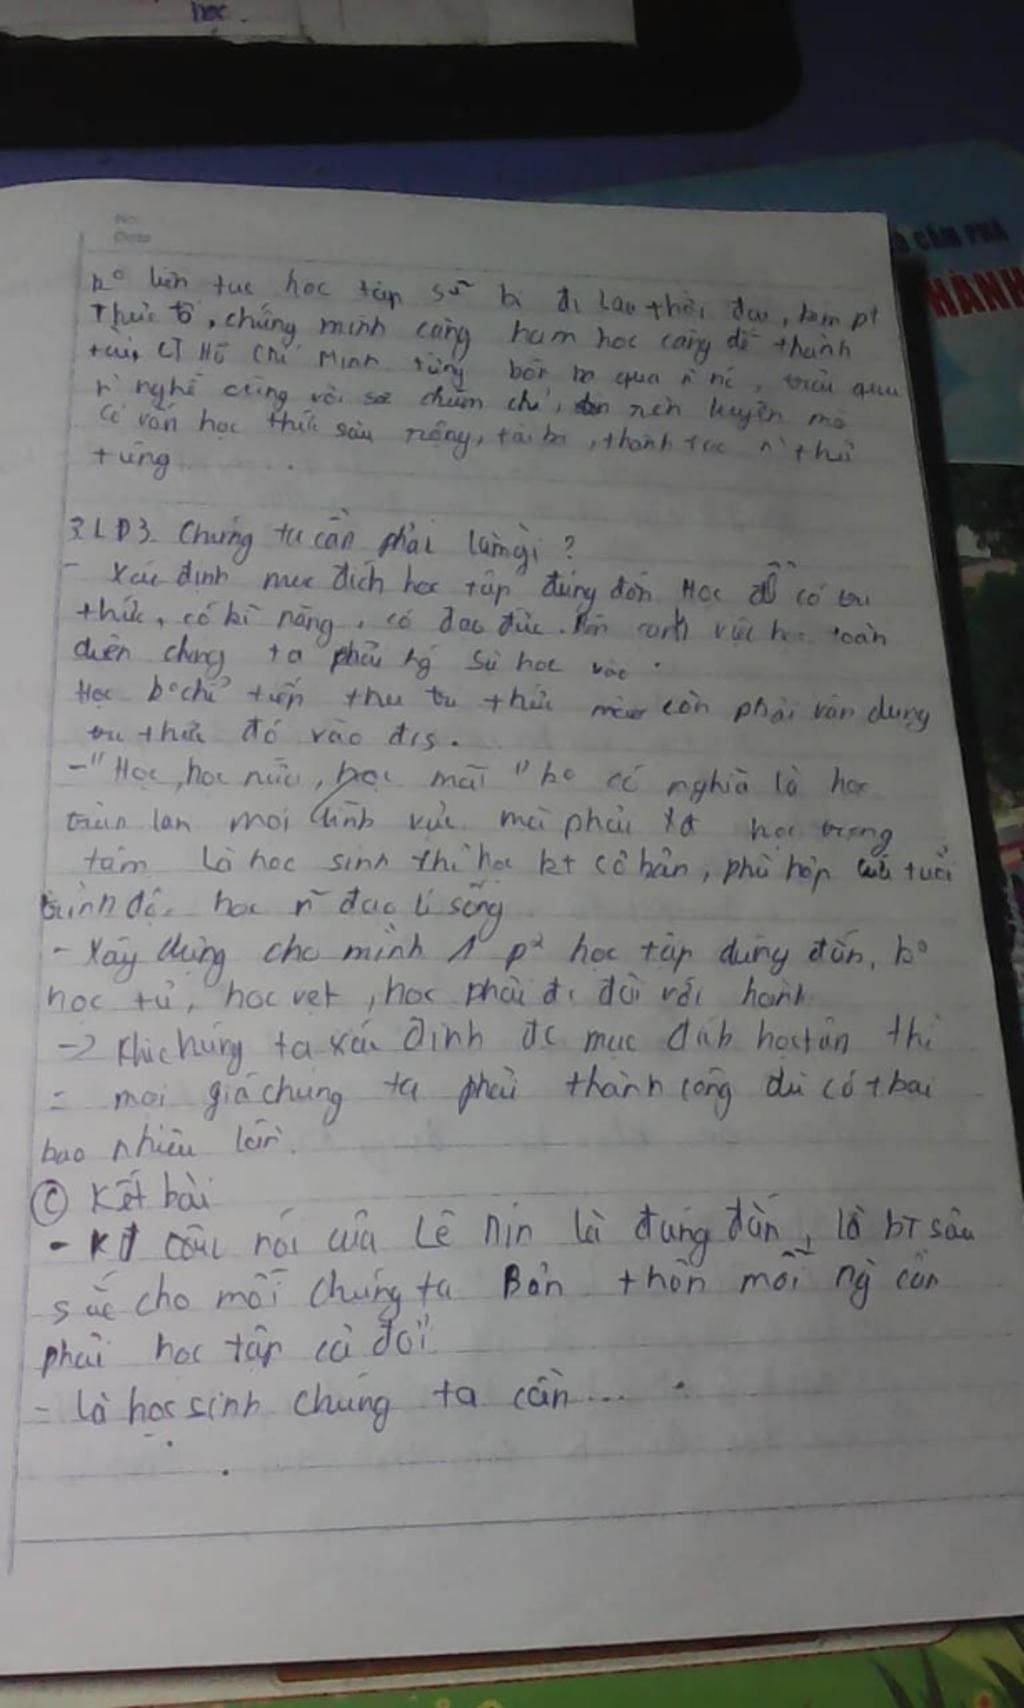 học.
No.
Date
Ò CẨM PHẢ
HÀNH
k° liên tục học tập sẽ bị đi lạc thời đại, kìm pt
Thực tế, chứng minh càng ham học càng dễ thành
tài, CT Hồ Chí Minh từng bôn ba qua n nc, trải qua
n nghề cũng với sự chăm chỉ, rèn luyện mà
có vốn học thức sâu rộng, tài ba, thành tục n thứ
tiếng
3. LĐ3. Chúng ta cần phải làm gì?
- Xác định mục đích học tập đúng đắn Học để có tri
thức, có kĩ năng, có đạo đức. Bên cạnh việc học toàn
diện chúng ta phải sự học vào
Học k°chỉ tiếp thu tri thức mà còn phải vận dụng
tri thức đó vào đ/s.
- "Học, học nữa, học mãi" k° có nghĩa là học
tràn lan mọi lĩnh vực mà phải xđ học trọng
tâm Là học sinh thì học kt cơ bản, phù hợp lứa tuổi
trình độ, học n đạo lí sống
- Xây dựng cho mình 1 p² học tập đúng đắn, k°
học tủ, học vẹt, học phải đi đôi với hành
-> Khi chúng ta xác định đc mục đích học tập thì
= mọi giá chúng ta phải thành công dù có thất bại
bao nhiêu lần.
Ⓒ Kết bài
- KĐ câu nói của Lê nin là đúng đắn, là bT sâu
sắc cho mỗi chúng ta Bản thân mỗi ng cần
phải học tập cả đời
- Là học sinh chúng ta cần...